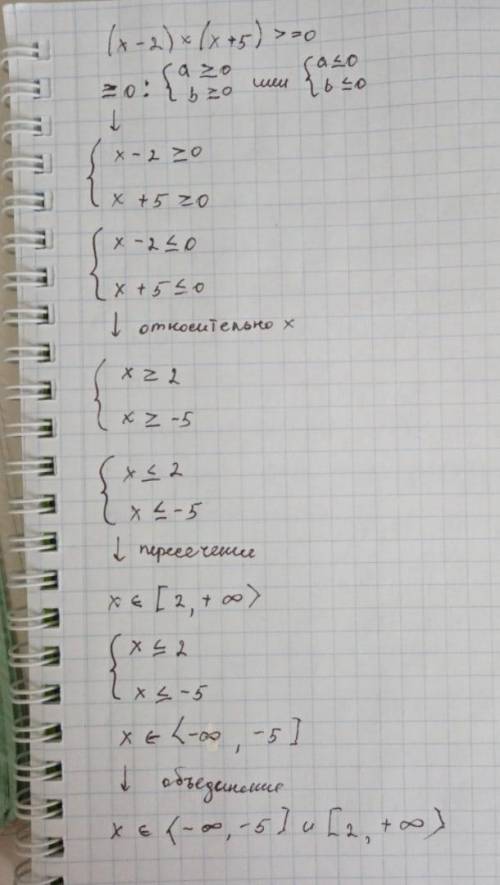 (x-2)×(x+5)>=0
≥0: { a≥0 или { a≤0
b≥0 b≤0
↓
{ x-2≥0
x+5≥0
{ x-2≤0
x+5≤0
↓ относительно x
{ x≥2
x≥-5
{ x≤2
x≤-5
↓ пересечение
x∈[2,+∞⟩
{ x≤2
x≤-5
x∈⟨-∞,-5]
↓ объединение
x∈⟨-∞,-5]∪[2,+∞⟩